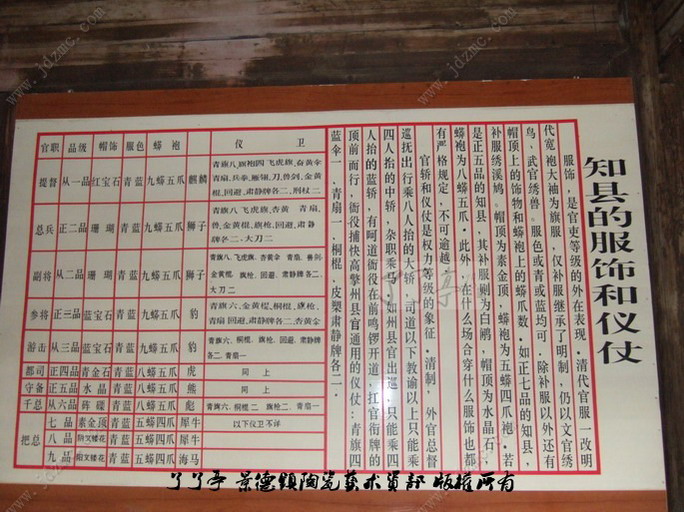 知县的服饰和仪仗
服饰，是官吏等级的外在表现。清代官服一改明
代宽袍大袖为旗服，仅补服继承了明制，仍以文官绣
鸟、武官绣兽。服色或青或蓝均可。除补服以外还有
帽顶上的饰物和蟒袍上的蟒爪数。如正七品的知县，
补服绣溪鸠。帽顶为素金顶，蟒袍为五蟒四爪袍。若
是正五品的知县，其补服则为白鹇，帽顶为水晶石，
蟒袍为八蟒五爪。此外，在什么场合穿什么服饰也都
有严格规定，不可逾越。
官轿和仪仗是权力等级的象征。清制，外官总督
巡抚出行乘八人抬的大轿，司道以下教谕以上只能乘
四人抬的中轿，杂职乘马。如州县官出巡，只能乘四
人抬的蓝轿，有呵道衙役在前鸣锣开道，扛官衔牌的
顶前而行，衙役捕快高擎州县官通用的仪仗：青旗四
蓝伞一，青扇一，桐棍，皮槊肃静牌各二。
官职 品级 帽饰 服色 蟒袍 仪卫
提督 从一品 红宝石 青蓝 九蟒五爪 麒麟 青旗八旗袍四飞虎旗，杏黄伞 青扇、兵拳、雁翎、刀、兽剑、金黄棍、回避、肃静牌各二、刑杖二
总兵 正二品 珊瑚 青蓝 九蟒五爪 狮子 青旗八飞虎旗、杏黄 青扇、兽、金黄棍、旗枪、回避、肃静牌各二、大刀二
副将 从二品 珊瑚 青蓝 九蟒五爪 狮子 青旗八、飞虎旗、杏黄伞 青扇、兽剑、金黄棍、旗枪、回避、肃静牌各二、大刀二
参将 正三品 蓝宝石 青蓝 九蟒五爪 豹 青旗六、金黄棍、桐棍、旗枪、青扇 回避、肃静牌各二、杏黄伞
游击 从三品 蓝宝石 青蓝 九蟒五爪 豹 青旗六、金黄棍、旗枪、回避、肃静牌各二、青扇一
都司 正四品 青金石 青蓝 八蟒五爪 虎 同上
守备 正五品 水晶 青蓝 八蟒五爪 熊 同上
千总 从六品 砗磲 青蓝 八蟒五爪 彪 青旗六、桐棍二、旗枪二、青扇一
把总 七品 素金顶 青蓝 五蟒四爪 犀牛 以下仪卫不详
八品 阴文镂花 青蓝 五蟒四爪 犀牛
九品 阳文镂花 青蓝 五蟒四爪 海马
了了亭 景德镇陶瓷艺术资部 版权所有
www.jdzmc.com